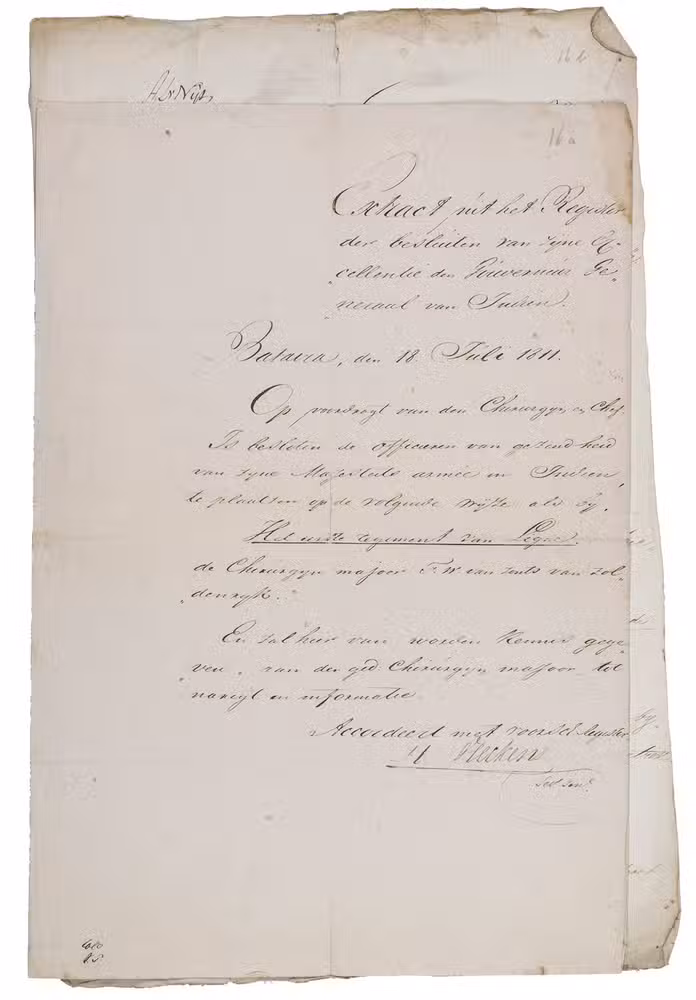 16 b
16 a
Extract uit het Register
der besluiten van zyne Ex-
„cellentie den Gouverneur Ge-
„neraal van Indien.
Batavia, den 18 Juli 1811.
Op voordragt van den Chirurgyn en Chef
Is besloten de officieren van gezondheid
van zyne Majesteits armée in Indien,
te plaatsen op de volgende wyze als by,
Het eerste regiment van Ligne.
de Chirurgyn majoor F. W van
„denryk.
En zal hier van worden Kennis gege-
„ven, van den ged Chirurgyn majoor tot
narigt en informatie
Accordeerd met voorsz Register